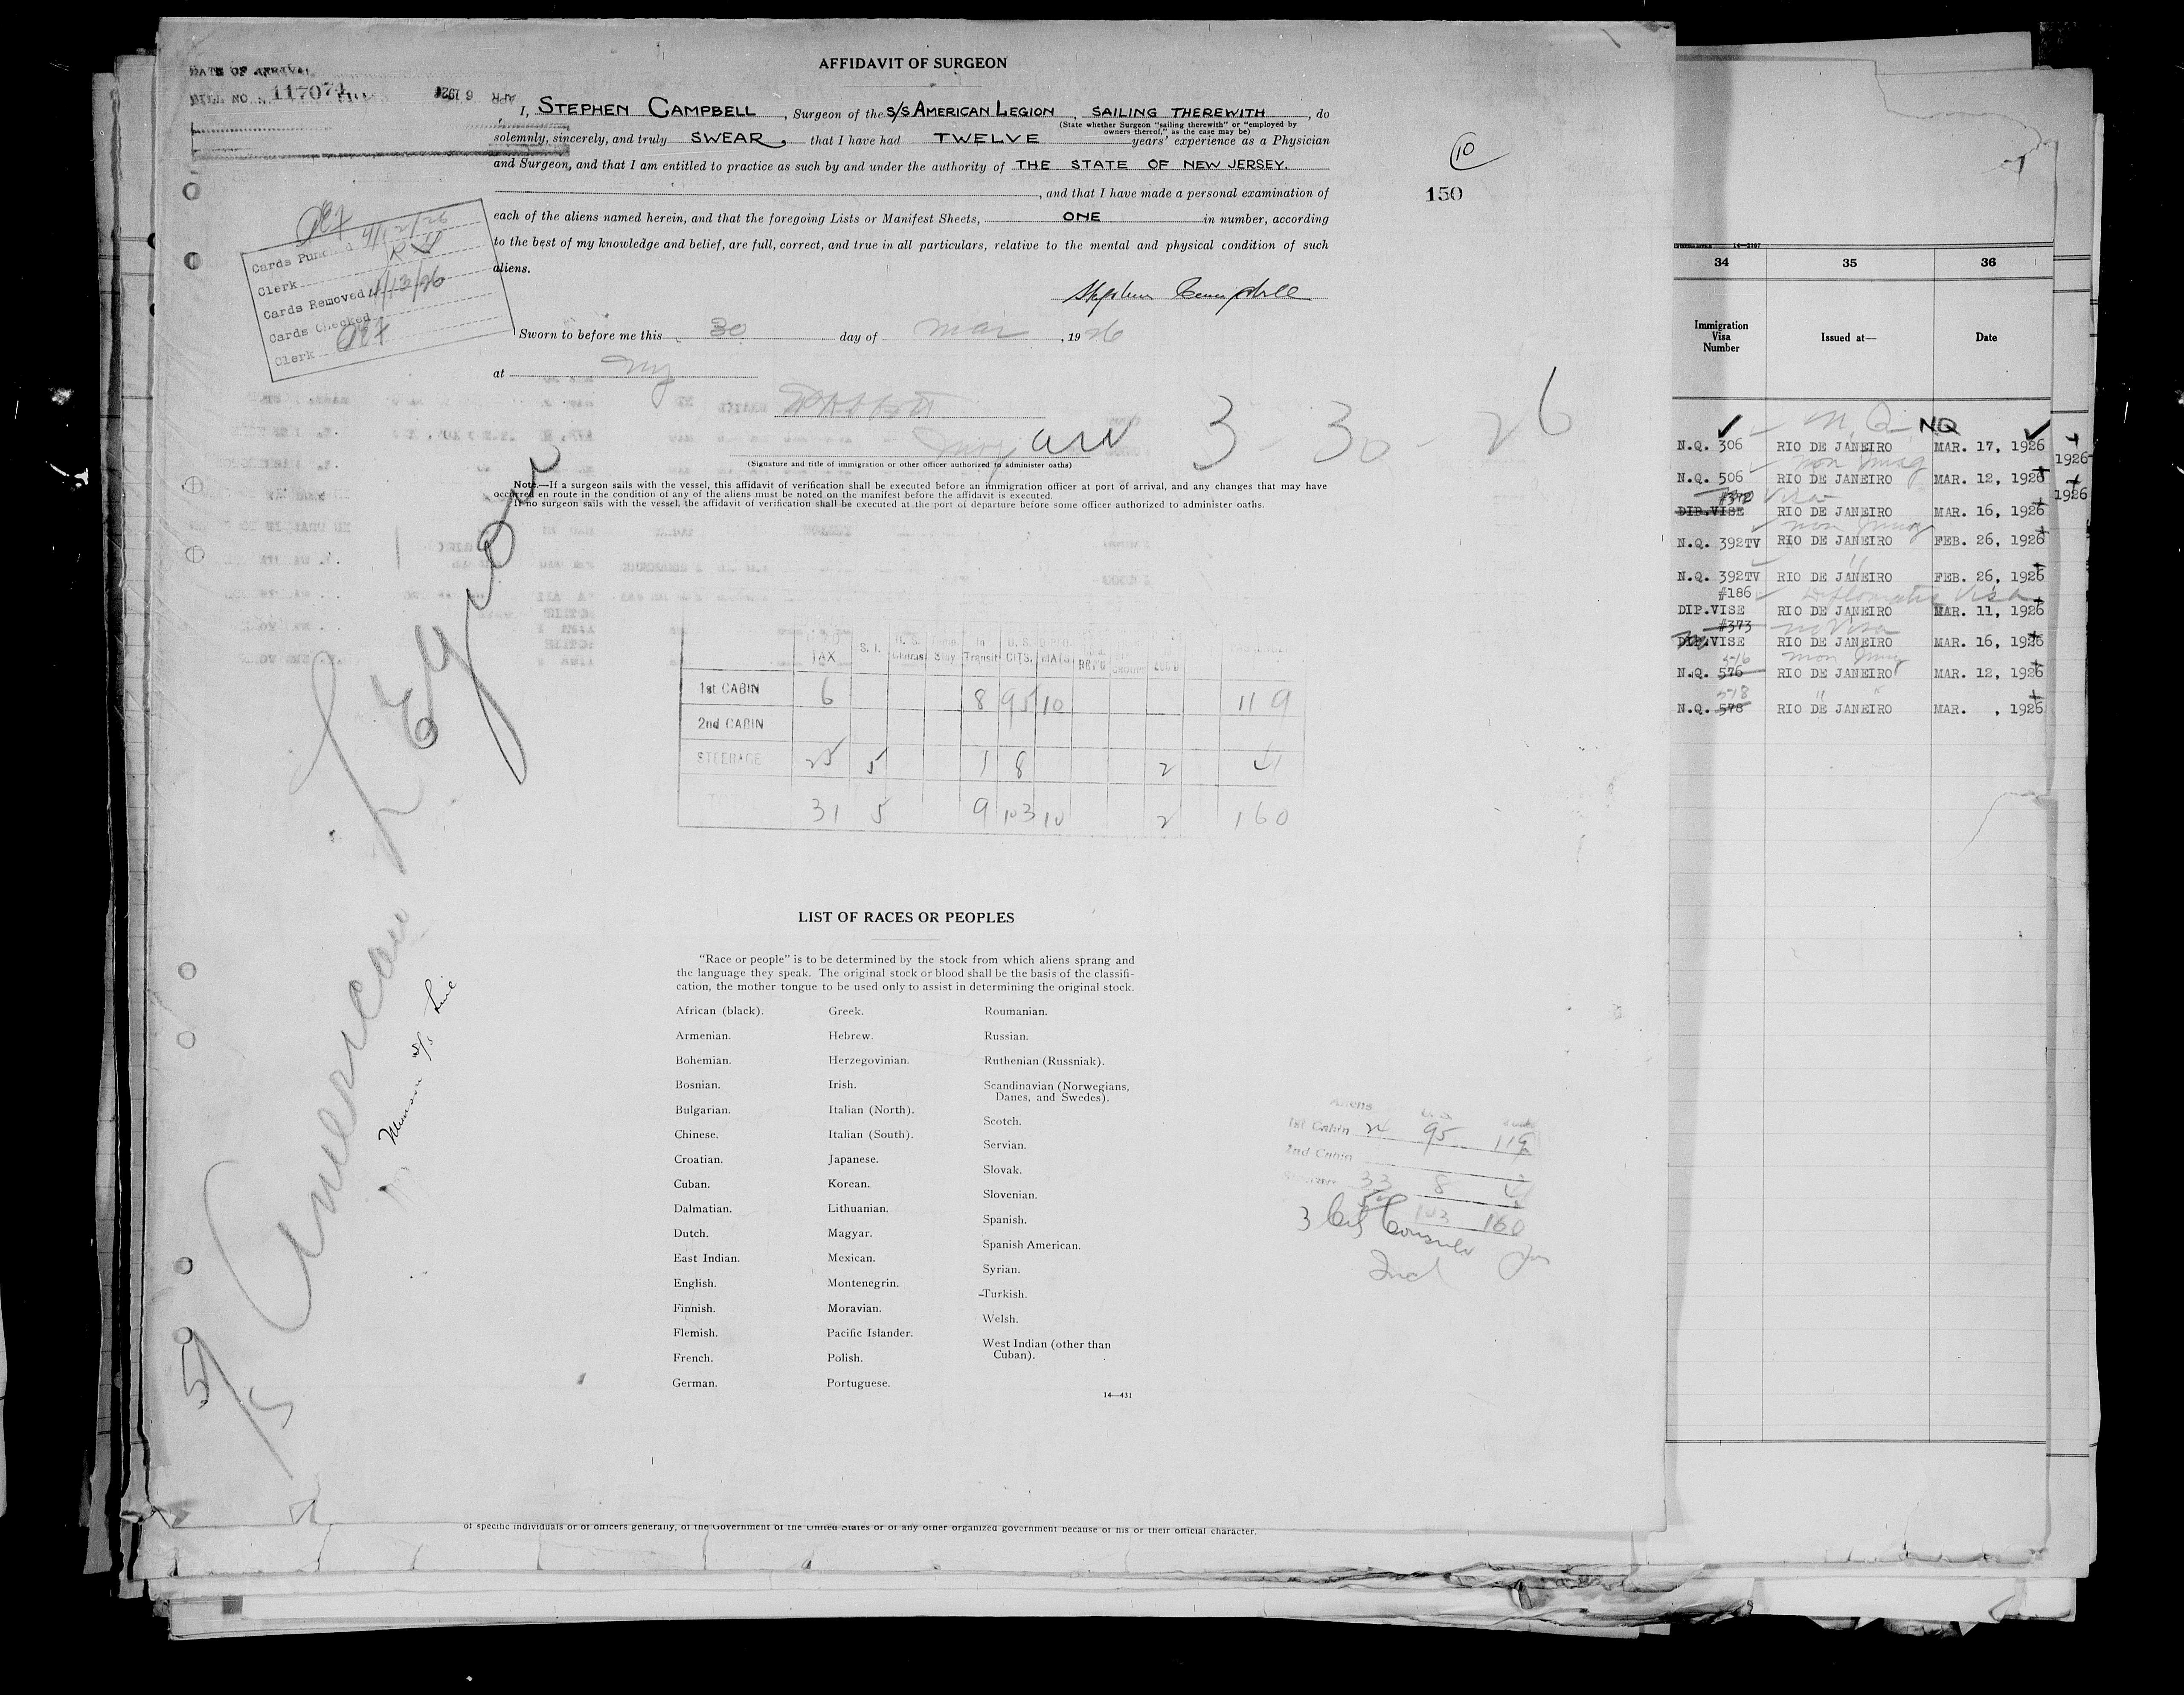 AFFIDAVIT OF SURGEON
DATE OF ARRIVAL
BILL NO. 117071
APR 6 1926
I, STEPHEN CAMPBELL, Surgeon of the S/S AMERICAN LEGION, SAILING THEREWITH, do
(State whether Surgeon "sailing therewith" or "employed by
owners thereof," as the case may be)
solemnly, sincerely, and truly SWEAR, that I have had TWELVE years' experience as a Physician
and Surgeon, and that I am entitled to practice as such by and under the authority of THE STATE OF NEW JERSEY.
, and that I have made a personal examination of
each of the aliens named herein, and that the foregoing Lists or Manifest Sheets, ONE in number, according
to the best of my knowledge and belief, are full, correct, and true in all particulars, relative to the mental and physical condition of such
aliens.
10
150
Cards Punched 4/12/26
Clerk RH
Cards Removed 4/13/26
Cards Checked
Clerk
Stephen Campbell
Sworn to before me this 30 day of Mar, 1926
at NY
arv 3-30-26
(Signature and title of immigration or other officer authorized to administer oaths)
Note.—If a surgeon sails with the vessel, this affidavit of verification shall be executed before an immigration officer at port of arrival, and any changes that may have
occurred en route in the condition of any of the aliens must be noted on the manifest before the affidavit is executed.
If no surgeon sails with the vessel, the affidavit of verification shall be executed at the port of departure before some officer authorized to administer oaths.
TAX S. I. Stay In Transit U. S. CITS.
1st CABIN 6 8 95 10 119
2nd CABIN
STEERAGE 25 5 1 8 2 41
31 5 9 103 10 2 160
American Legion
Munson S/S Line
LIST OF RACES OR PEOPLES
"Race or people" is to be determined by the stock from which aliens sprang and
the language they speak. The original stock or blood shall be the basis of the classifi-
cation, the mother tongue to be used only to assist in determining the original stock.
African (black).
Armenian.
Bohemian.
Bosnian.
Bulgarian.
Chinese.
Croatian.
Cuban.
Dalmatian.
Dutch.
East Indian.
English.
Finnish.
Flemish.
French.
German.
Greek.
Hebrew.
Herzegovinian.
Irish.
Italian (North).
Italian (South).
Japanese.
Korean.
Lithuanian.
Magyar.
Mexican.
Montenegrin.
Moravian.
Pacific Islander.
Polish.
Portuguese.
Roumanian.
Russian.
Ruthenian (Russniak).
Scandinavian (Norwegians,
Danes, and Swedes).
Scotch.
Servian.
Slovak.
Slovenian.
Spanish.
Spanish American.
Syrian.
Turkish.
Welsh.
West Indian (other than
Cuban).
14—431
Aliens U. S.
1st Cabin 24 95 119
2nd Cabin
Steerage 33 8 41
103 160
of specific individuals or of officers generally, of the Government of the United States or of any other organized government because of his or their official character.
14—2167
34 35 36
Immigration
Visa
Number
Issued at—
Date
NQ
N.Q. 306 RIO DE JANEIRO MAR. 17, 1926
non Immig
N.Q. 506 RIO DE JANEIRO MAR. 12, 1926
#372 Visa
DIP.VISE RIO DE JANEIRO MAR. 16, 1926
non Immig
N.Q. 392TV RIO DE JANEIRO FEB. 26, 1926
N.Q. 392TV RIO DE JANEIRO FEB. 26, 1926
#186 Diplomatic Visa
DIP.VISE RIO DE JANEIRO MAR. 11, 1926
#373 no Visa
DIP.VISE RIO DE JANEIRO MAR. 16, 1926
516 non Immig
N.Q. 576 RIO DE JANEIRO MAR. 12, 1926
518 " "
N.Q. 578 RIO DE JANEIRO MAR. , 1926
1926
1926